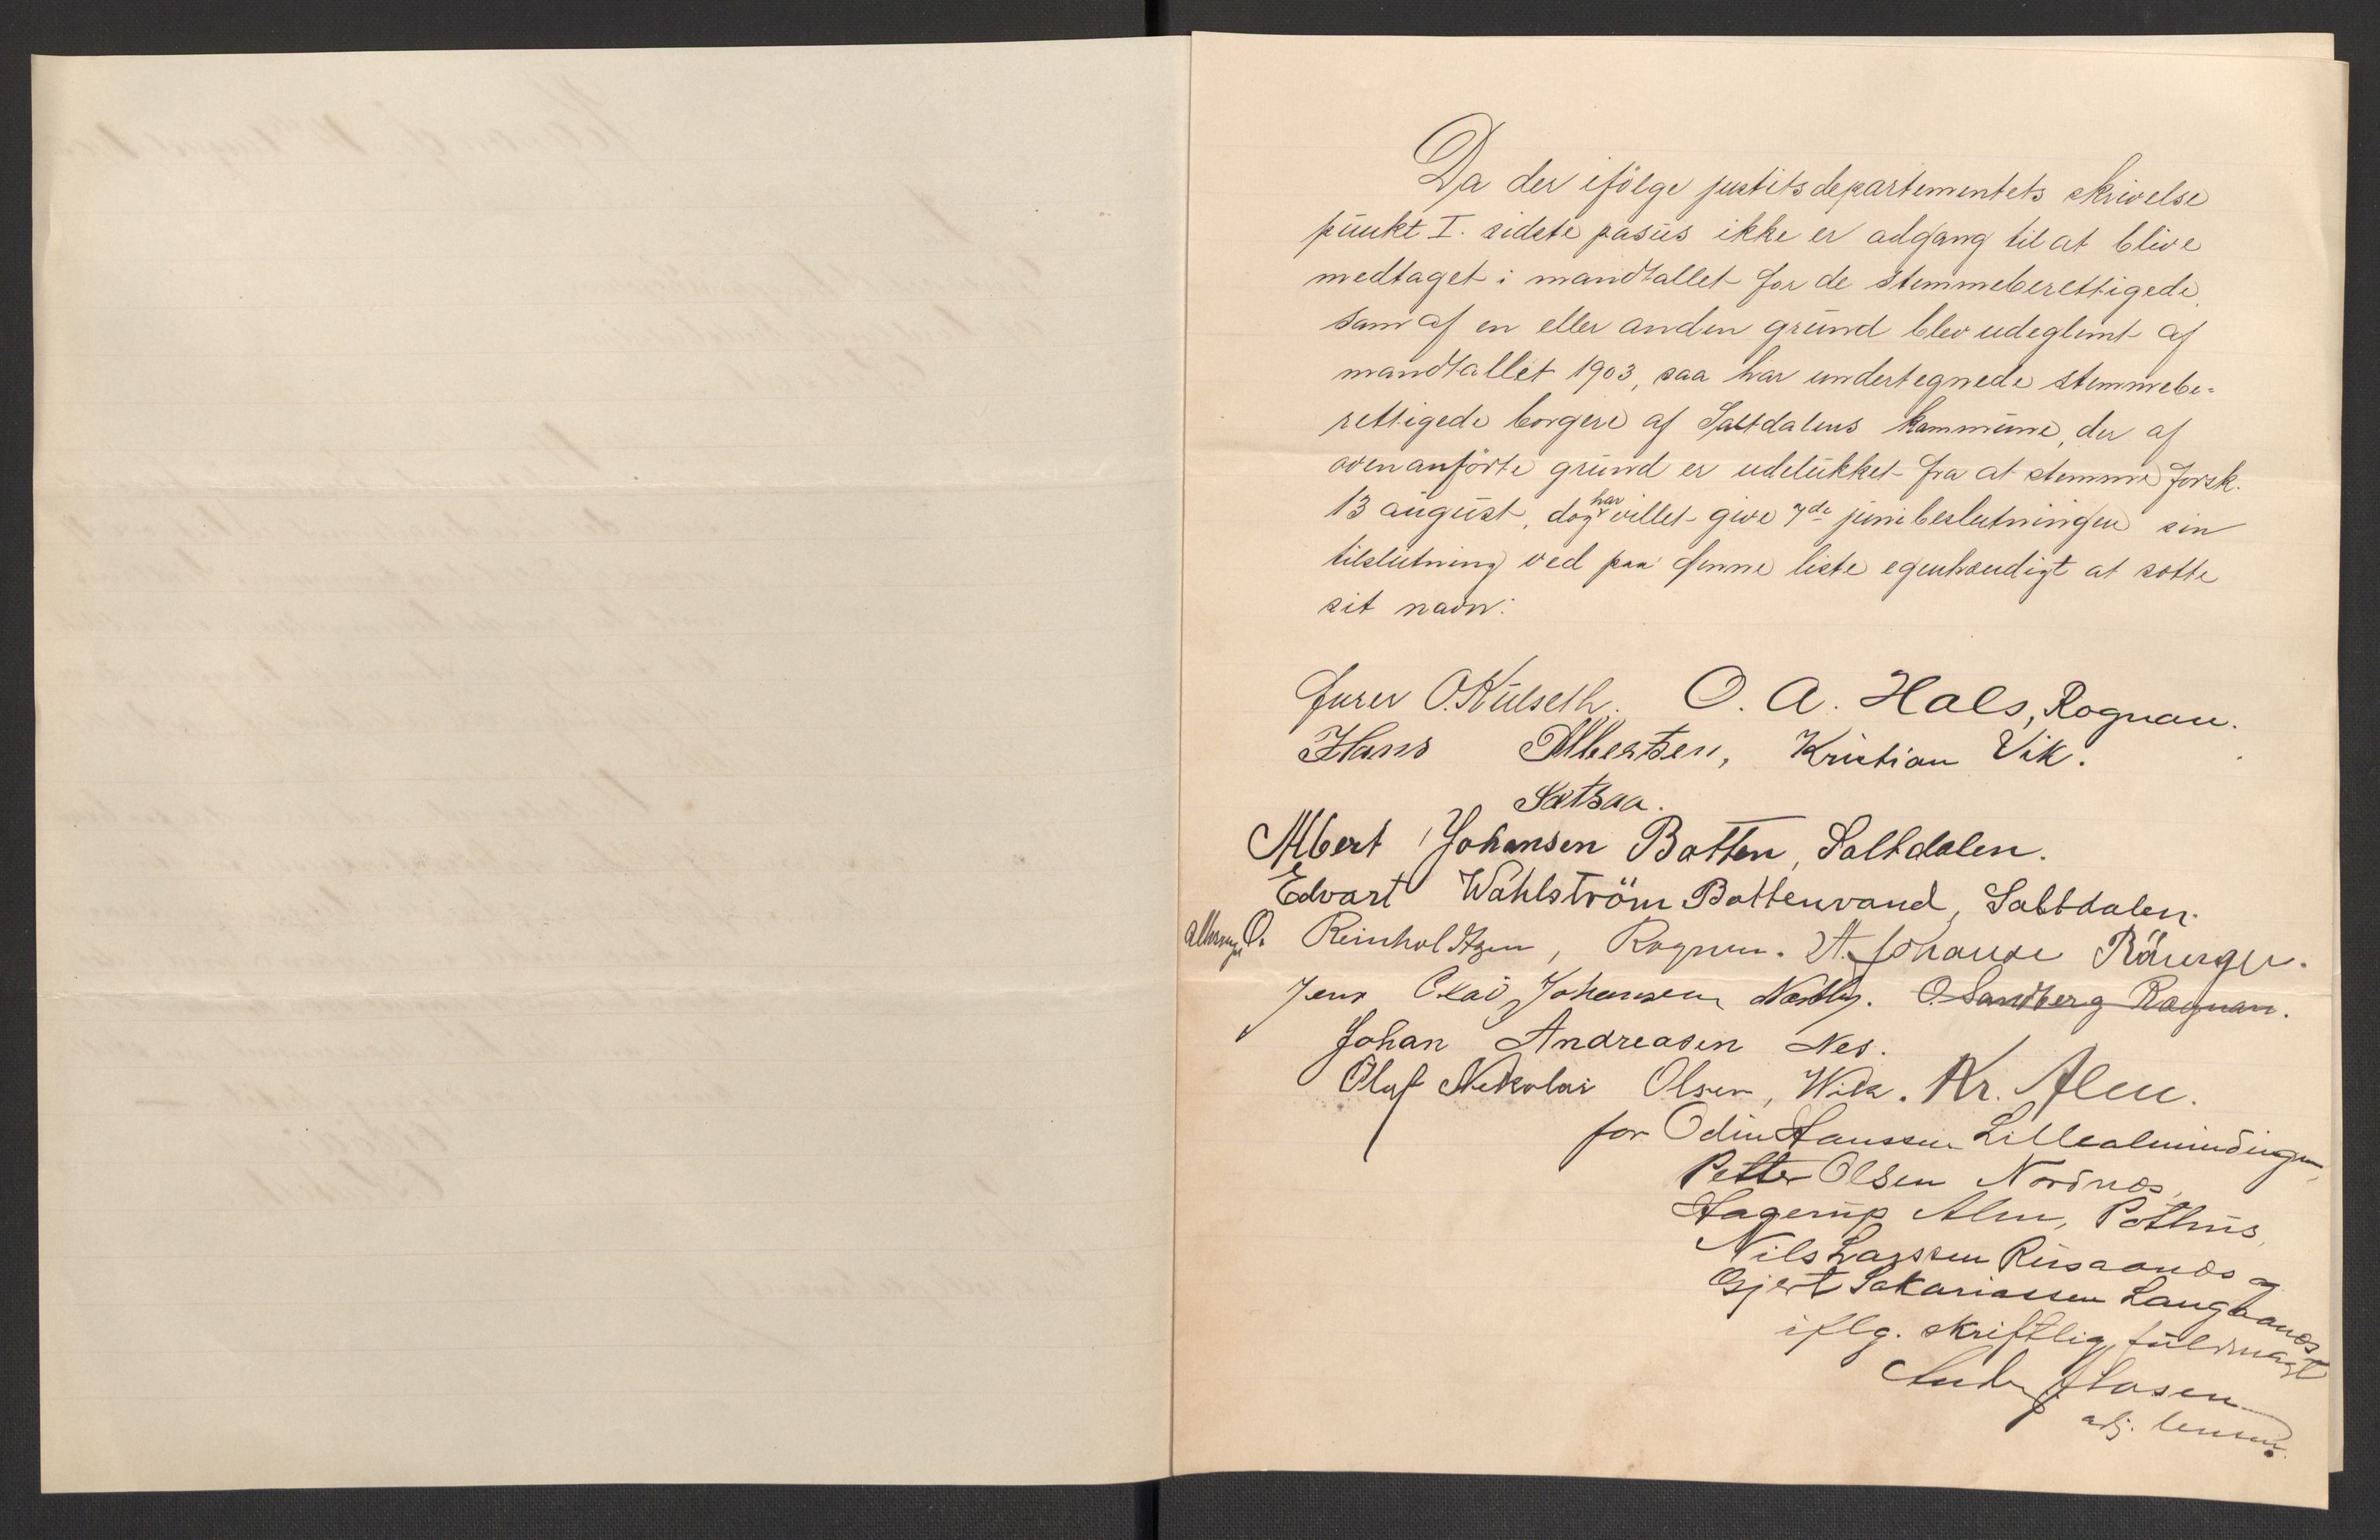 Da der ifölge justitsdepartementets skrivelse
punkt I. sidste pasus ikke er adgang til at blive
medtaget i mandtallet for de stemmeberettigede,
som af en eller anden grund blev udeglemt af
mandtallet 1903, saa har undertegnede stemmebe-
rettigede borgere af Saltdalens kommune, der af
ovenanförte grund er udelukket fra at stemme förstk.
13 august, dog har villet give 7de junibeslutningen sin
tilslutning ved paa denne liste egenhændigt at sætte
sit navn:
O. Kulseth. O. A. Hals, Rognan.
Hans Albertsen, Kristian Vik.
Albert Johansen Botten, Saltdalen.
Edvart Wahlström Bottenvand, Saltdalen.
O. Reinholtzen, Rognan. A. Johanse
Jens Olai Johansen Nestby. O. Sandberg Rognan.
Johan Andreasen Nes.
Oluf Nikolai Olsen, Wik. Kr. Alm.
for Odin Hanssen Lillealmindingen,
Petter Olsen Nordnes,
Hagerup Alm, Pothus,
Nils Larssen Rusaanes og
Gjert Sakariassen Langsaanes
iflg. skriftlig fuldmagt